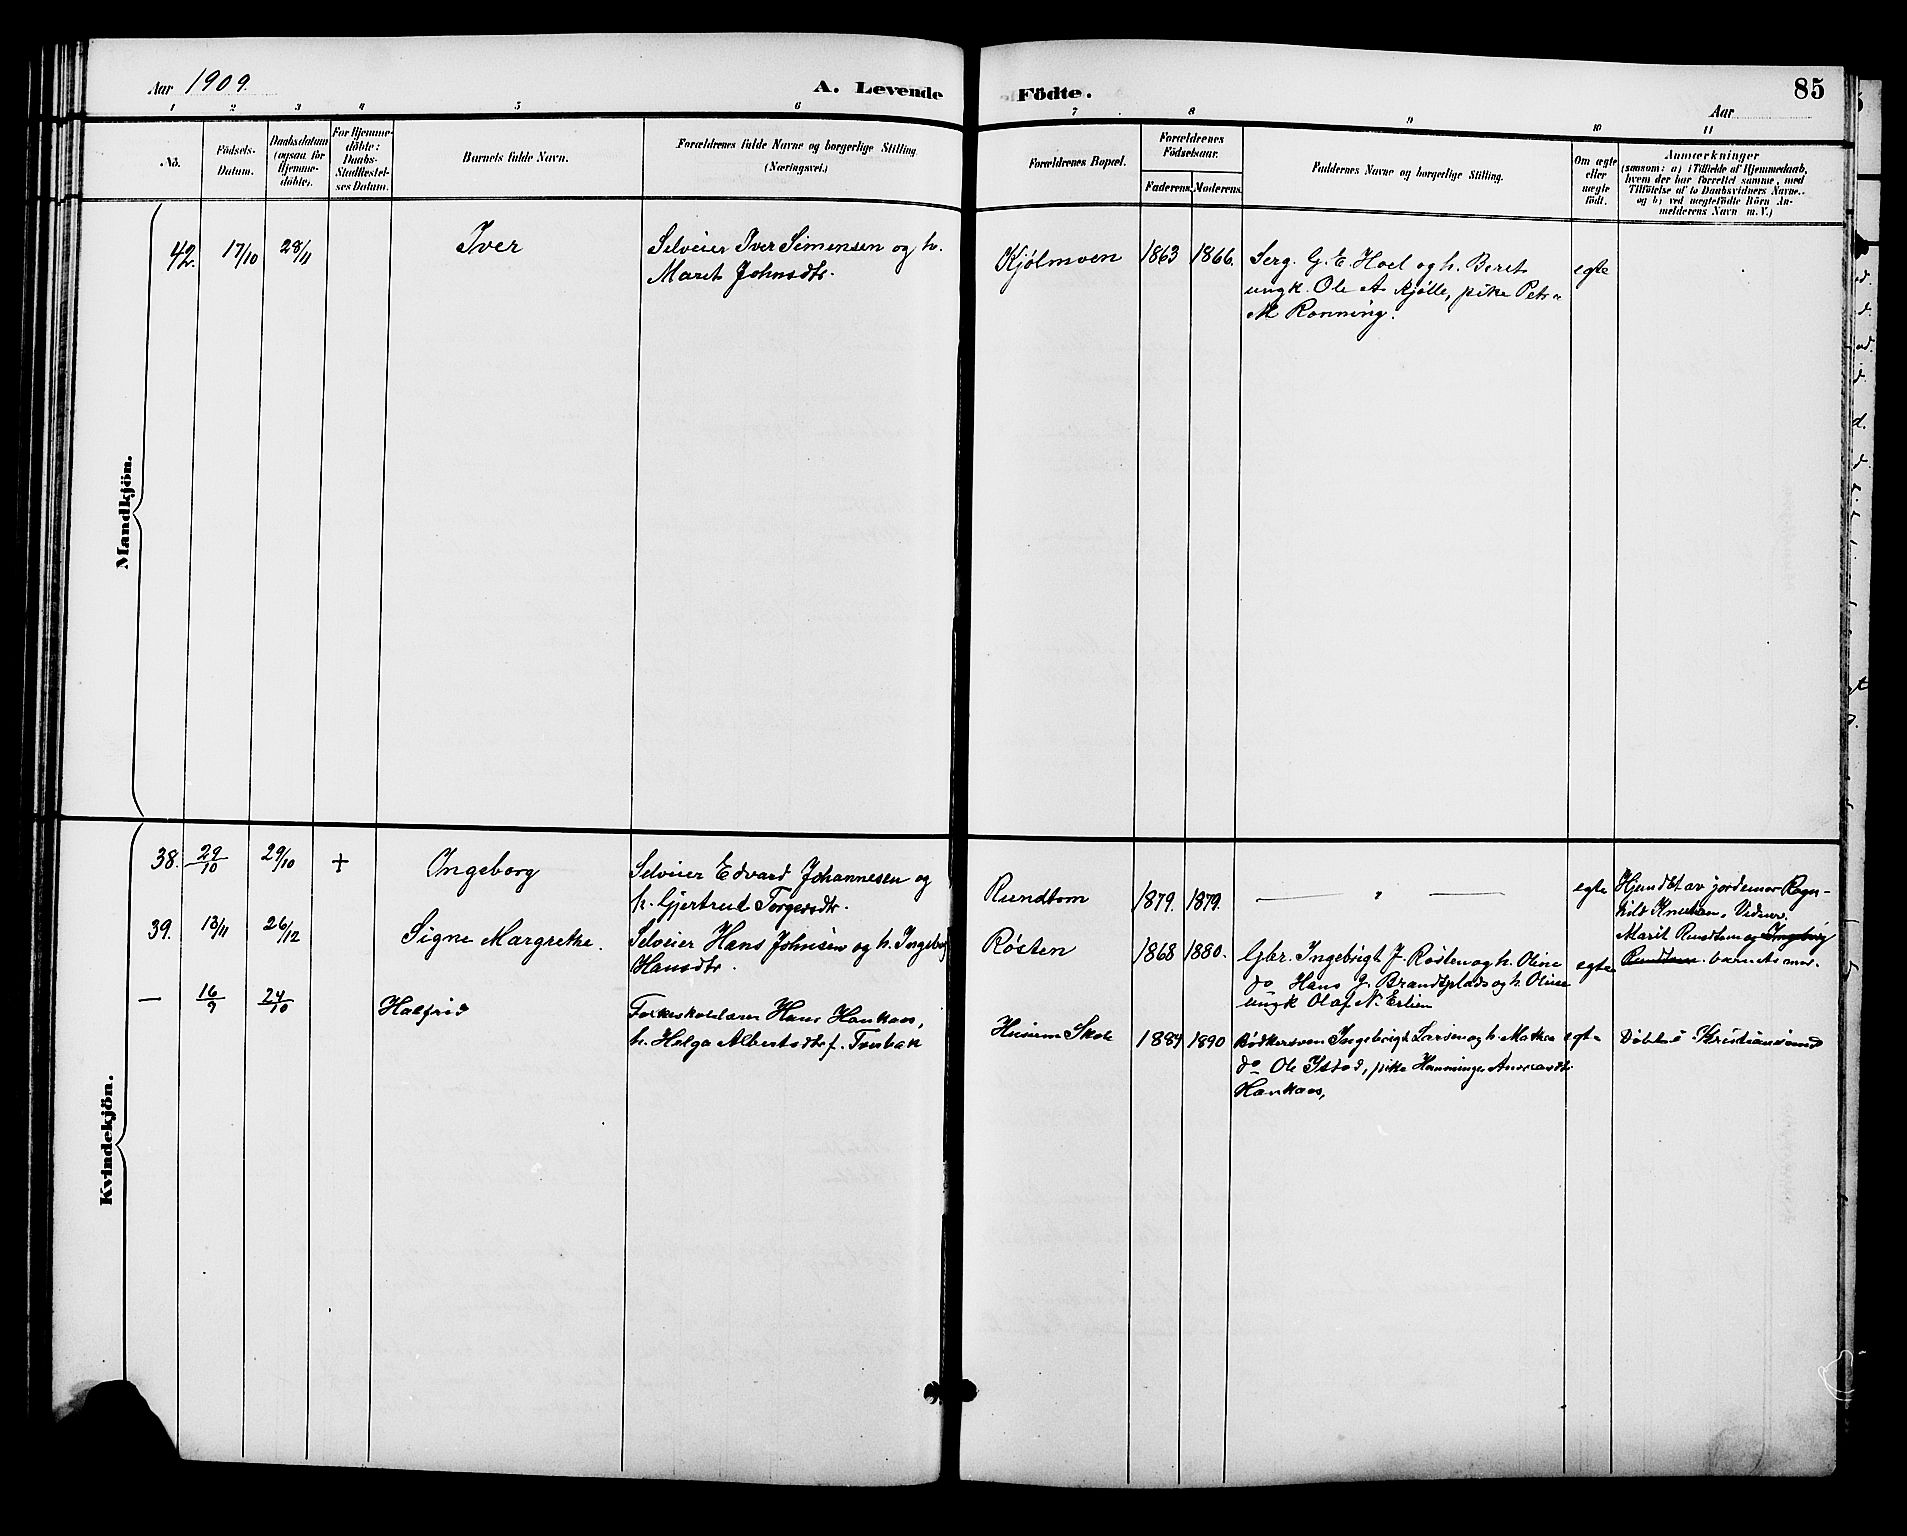 Aar 1909.
A. Levende
Födte.
85
Aar
1 2 3 4 5 6 7 8 9 10 11
No.
Födsels-
Datum.
Daabsdatum
(ogsaa for
Hjemme-
döbte).
For Hjemme-
döbte:
Daabs-
Stadfæstel-
ses Datum.
Barnets fulde Navn.
Forældrenes fulde Navne og borgerlige Stilling
(Næringsvei.)
Forældrenes Bopæl.
Forældrenes
Födselsaar.
Faderens.
Moderens.
Faddernes Navne og borgerlige Stilling.
Om ægte
eller
uægte
födt.
Anmærkninger
(saasom: a) i Tilfælde af Hjemmedaab,
hvem der har forrettet samme, med
Tilföielse af to Daabsvidners Navne.
og b) ved uægtefödte Börn An-
melderens Navn m. V.)
Mandkjön.
42. 17/10 28/11 Iver
Selveier Iver Simensen og h.
Maret Johnsdtr.
Kjölmoen 1863 1866.
Serg. G. E. Hoel og h. Beret
ungk. Ole A. Kjölle, pike Petr
M Rønning.
egte
Kvindekjön.
38. 29/10 29/10 + Ingeborg
Selveier Edvard Johannesen og
h. Gjertrud Torgersdtr.
Rundtom 1879. 1879. — " —
egte
Hjemdbt av jordemor Ragn-
hild Knutsen, Vidner.
Marit Rundtom og Ingeborg
Rundtom barnets mor.
39. 13/11 26/12 Signe Margrethe.
Selveier Hans Johnsen og h. Ingeborg
Hansdtr.
Røsten 1868 1880.
Gbr. Ingebrigt J. Røsten og h. Oline
do Hans J. Brandsplads og h. Oline
ungk Olaf N. Erlien
egte
— 16/9 24/10 Halfrid
Folkeskolelærer Hans Hankaas,
h. Helga Albertsdtr f. Torbak
Husum Skole 1884 1890
Bødkersven Ingebrigt Larsen og h. Mathea
do Ole Ystad, pike Hanninge Andreasdtr
Hankaas,
egte
Döbt i Kristiansund